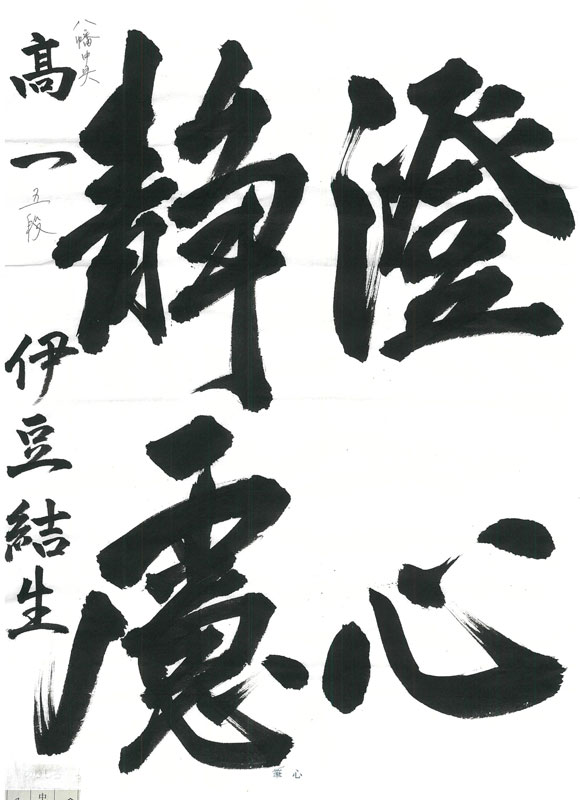 澄心
静慮
高一 伊豆結生
八幡中央
五段
筆心
中